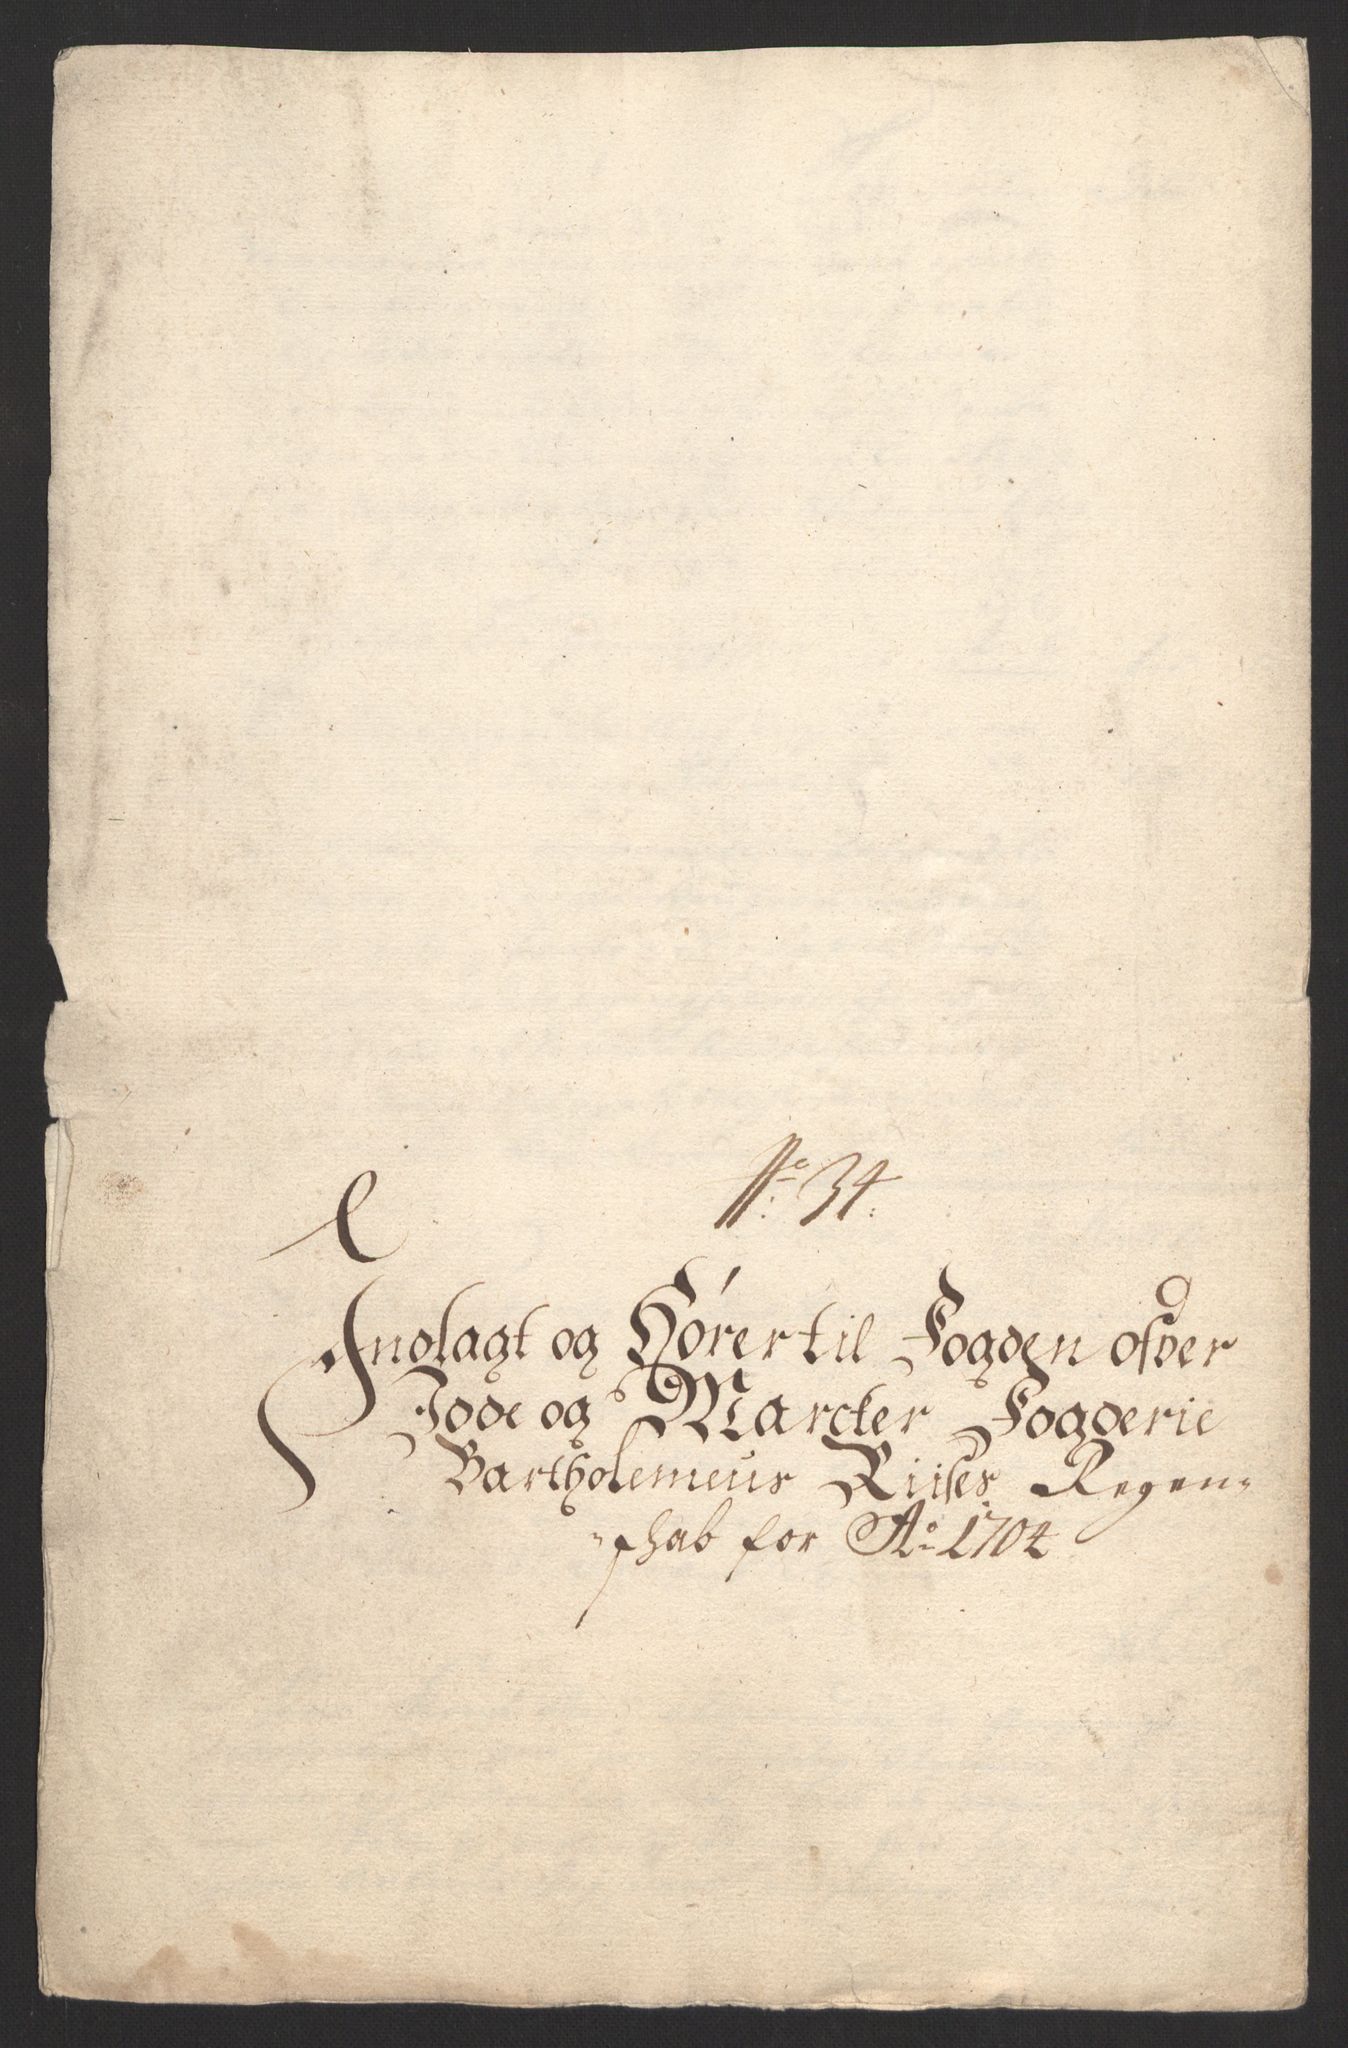 No. 34.
Indlagt og Hører til Fogden ofver
Idde og Marcker Fogderie
Bartholemeus Riises Regen-
-schab for Ao. 1704